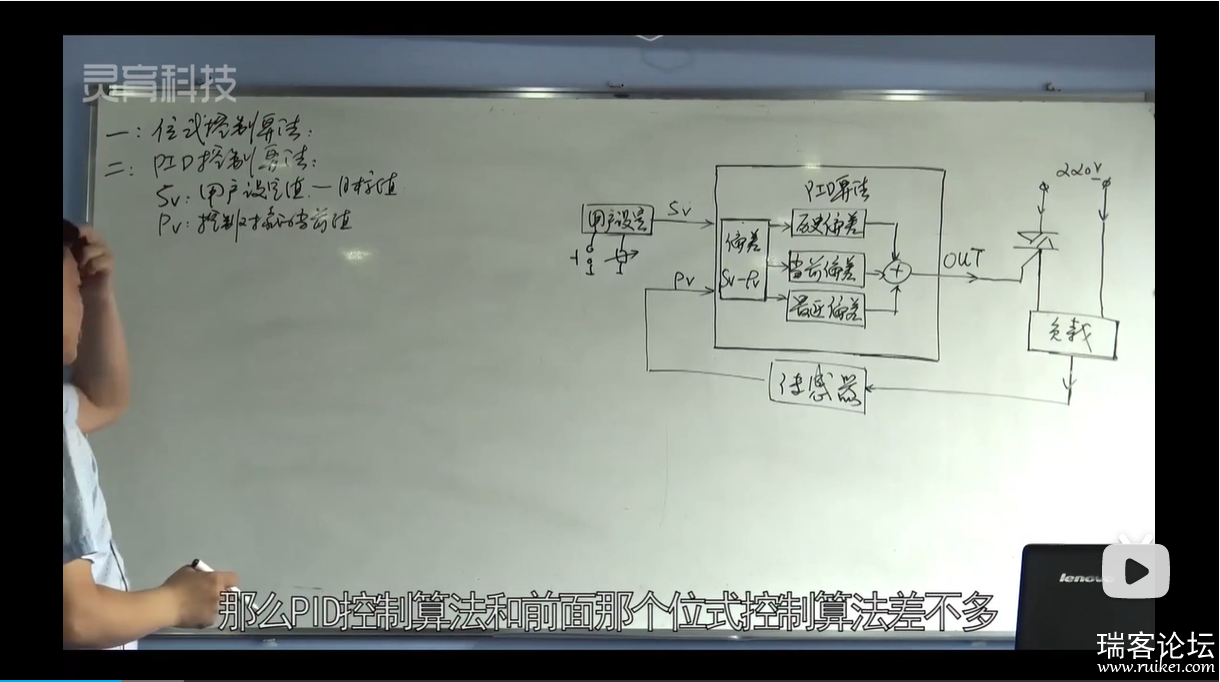 灵育科技
一：位式控制算法：
二：PID控制算法：
Sv：用户设定值—目标值
Pv：控制对象的当前值
用户设定
Sv
Pv
PID算法
偏差
Sv-Pv
历史偏差
当前偏差
最近偏差
+
OUT
220V
负载
传感器
lenovo
那么PID控制算法和前面那个位式控制算法差不多
瑞客论坛
www.ruike1.com